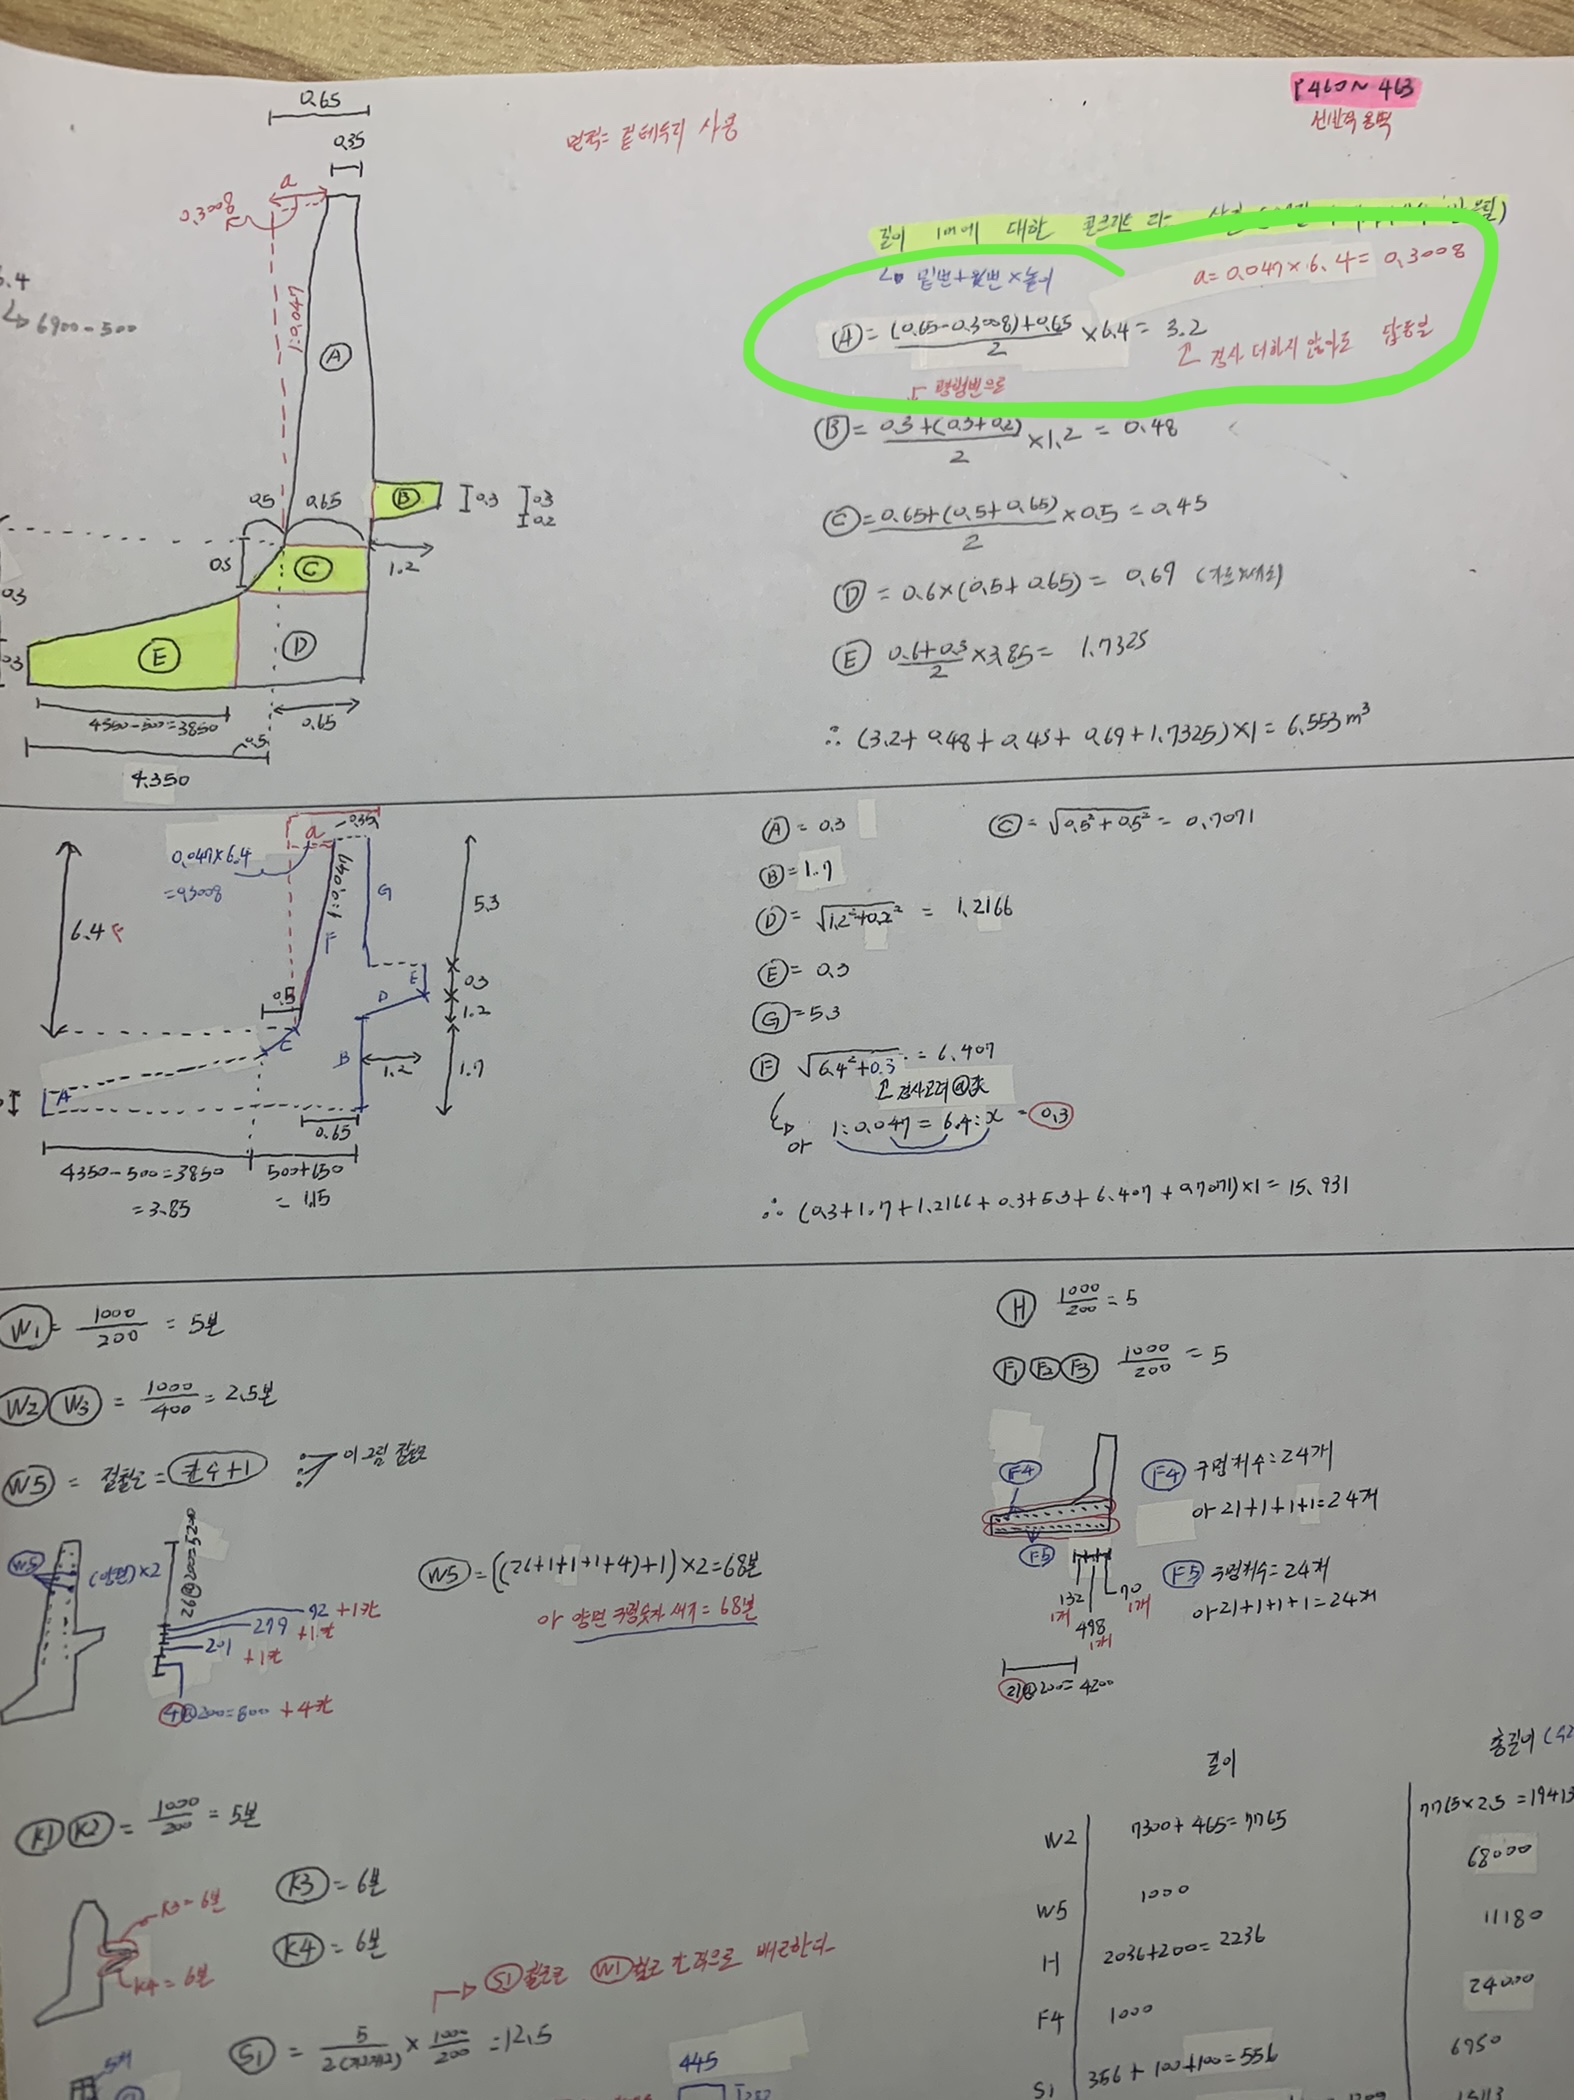 P460~463
0.65
0.35
a
0.3008
1:0.047
6.4
↳ 6900-500
Ⓐ
0.5
0.65
Ⓑ
0.3
0.3
0.2
0.5
Ⓒ
1.2
0.3
0.3
Ⓔ
Ⓓ
4350-500=3850
0.65
0.5
4.350
면적= 겉테두리 사용
길이 1m에 대한 콘크리트
↳ 밑변+윗변×높이
a=0.047×6.4=0.3008
Ⓐ= (0.65-0.3008)+0.65 / 2 ×6.4= 3.2
경사 더하지 않아도 답동일
Ⓑ= 0.3+(0.3+0.2) / 2 ×1.2 = 0.48
Ⓒ= 0.65+(0.5+0.65) / 2 ×0.5=0.45
Ⓓ = 0.6×(0.5+0.65)= 0.69 (가로×세로)
Ⓔ 0.6+0.3 / 2 ×3.85= 1.7325
∴ (3.2+0.48+0.45+0.69+1.7325)×1=6.553m³
a
0.35
0.047×6.4
=0.3008
1:0.047
G
5.3
6.4
F
E
0.3
D
1.2
0.5
C
B
1.2
1.7
A
0.65
4350-500=3850
=3.85
500+650
= 1.15
Ⓐ= 0.3
Ⓒ=√0.5²+0.5² = 0.7071
Ⓑ=1.7
Ⓓ= √1.2²+0.2² = 1.2166
Ⓔ= 0.3
Ⓖ=5.3
Ⓕ √6.4²+0.3 = 6.407
or 1:0.047 = 6.4:x = 0.3
∴ (0.3+1.7+1.2166+0.3+5.3+6.407+0.7071)×1=15.931
W1= 1000/200 = 5본
W2 W3 = 1000/400 = 2.5본
W5 = 절철근= 칸수+1
이그림 절철근
W5
(양면)×2
26@200=5200
92 +1칸
279 +1칸
201 +1칸
4@200=800 +4칸
W5=((26+1+1+1+4)+1)×2=68본
or 양면 구멍숫자 세기=68본
H 1000/200=5
F1 F2 F3 1000/200 = 5
F4
F5
F4 구멍개수=24개
or 21+1+1+1=24개
F5 구멍개수=24개
or 21+1+1+1=24개
132
1개
498
1개
70
1개
21@200=4200
K1 K2= 1000/200=5본
K3=6본
K4=6본
K3 = 6본
K4 = 6본
S1철근은 W1철근 간격으로 배근한다.
S1 = 5/2 × 1000/200 =12.5
445
길이
총길이
W2
7300+465=7765
7765×2.5=19413
W5
1000
68000
H
2036+200=2236
11180
F4
1000
24000
S1
356+100+100=556
6950